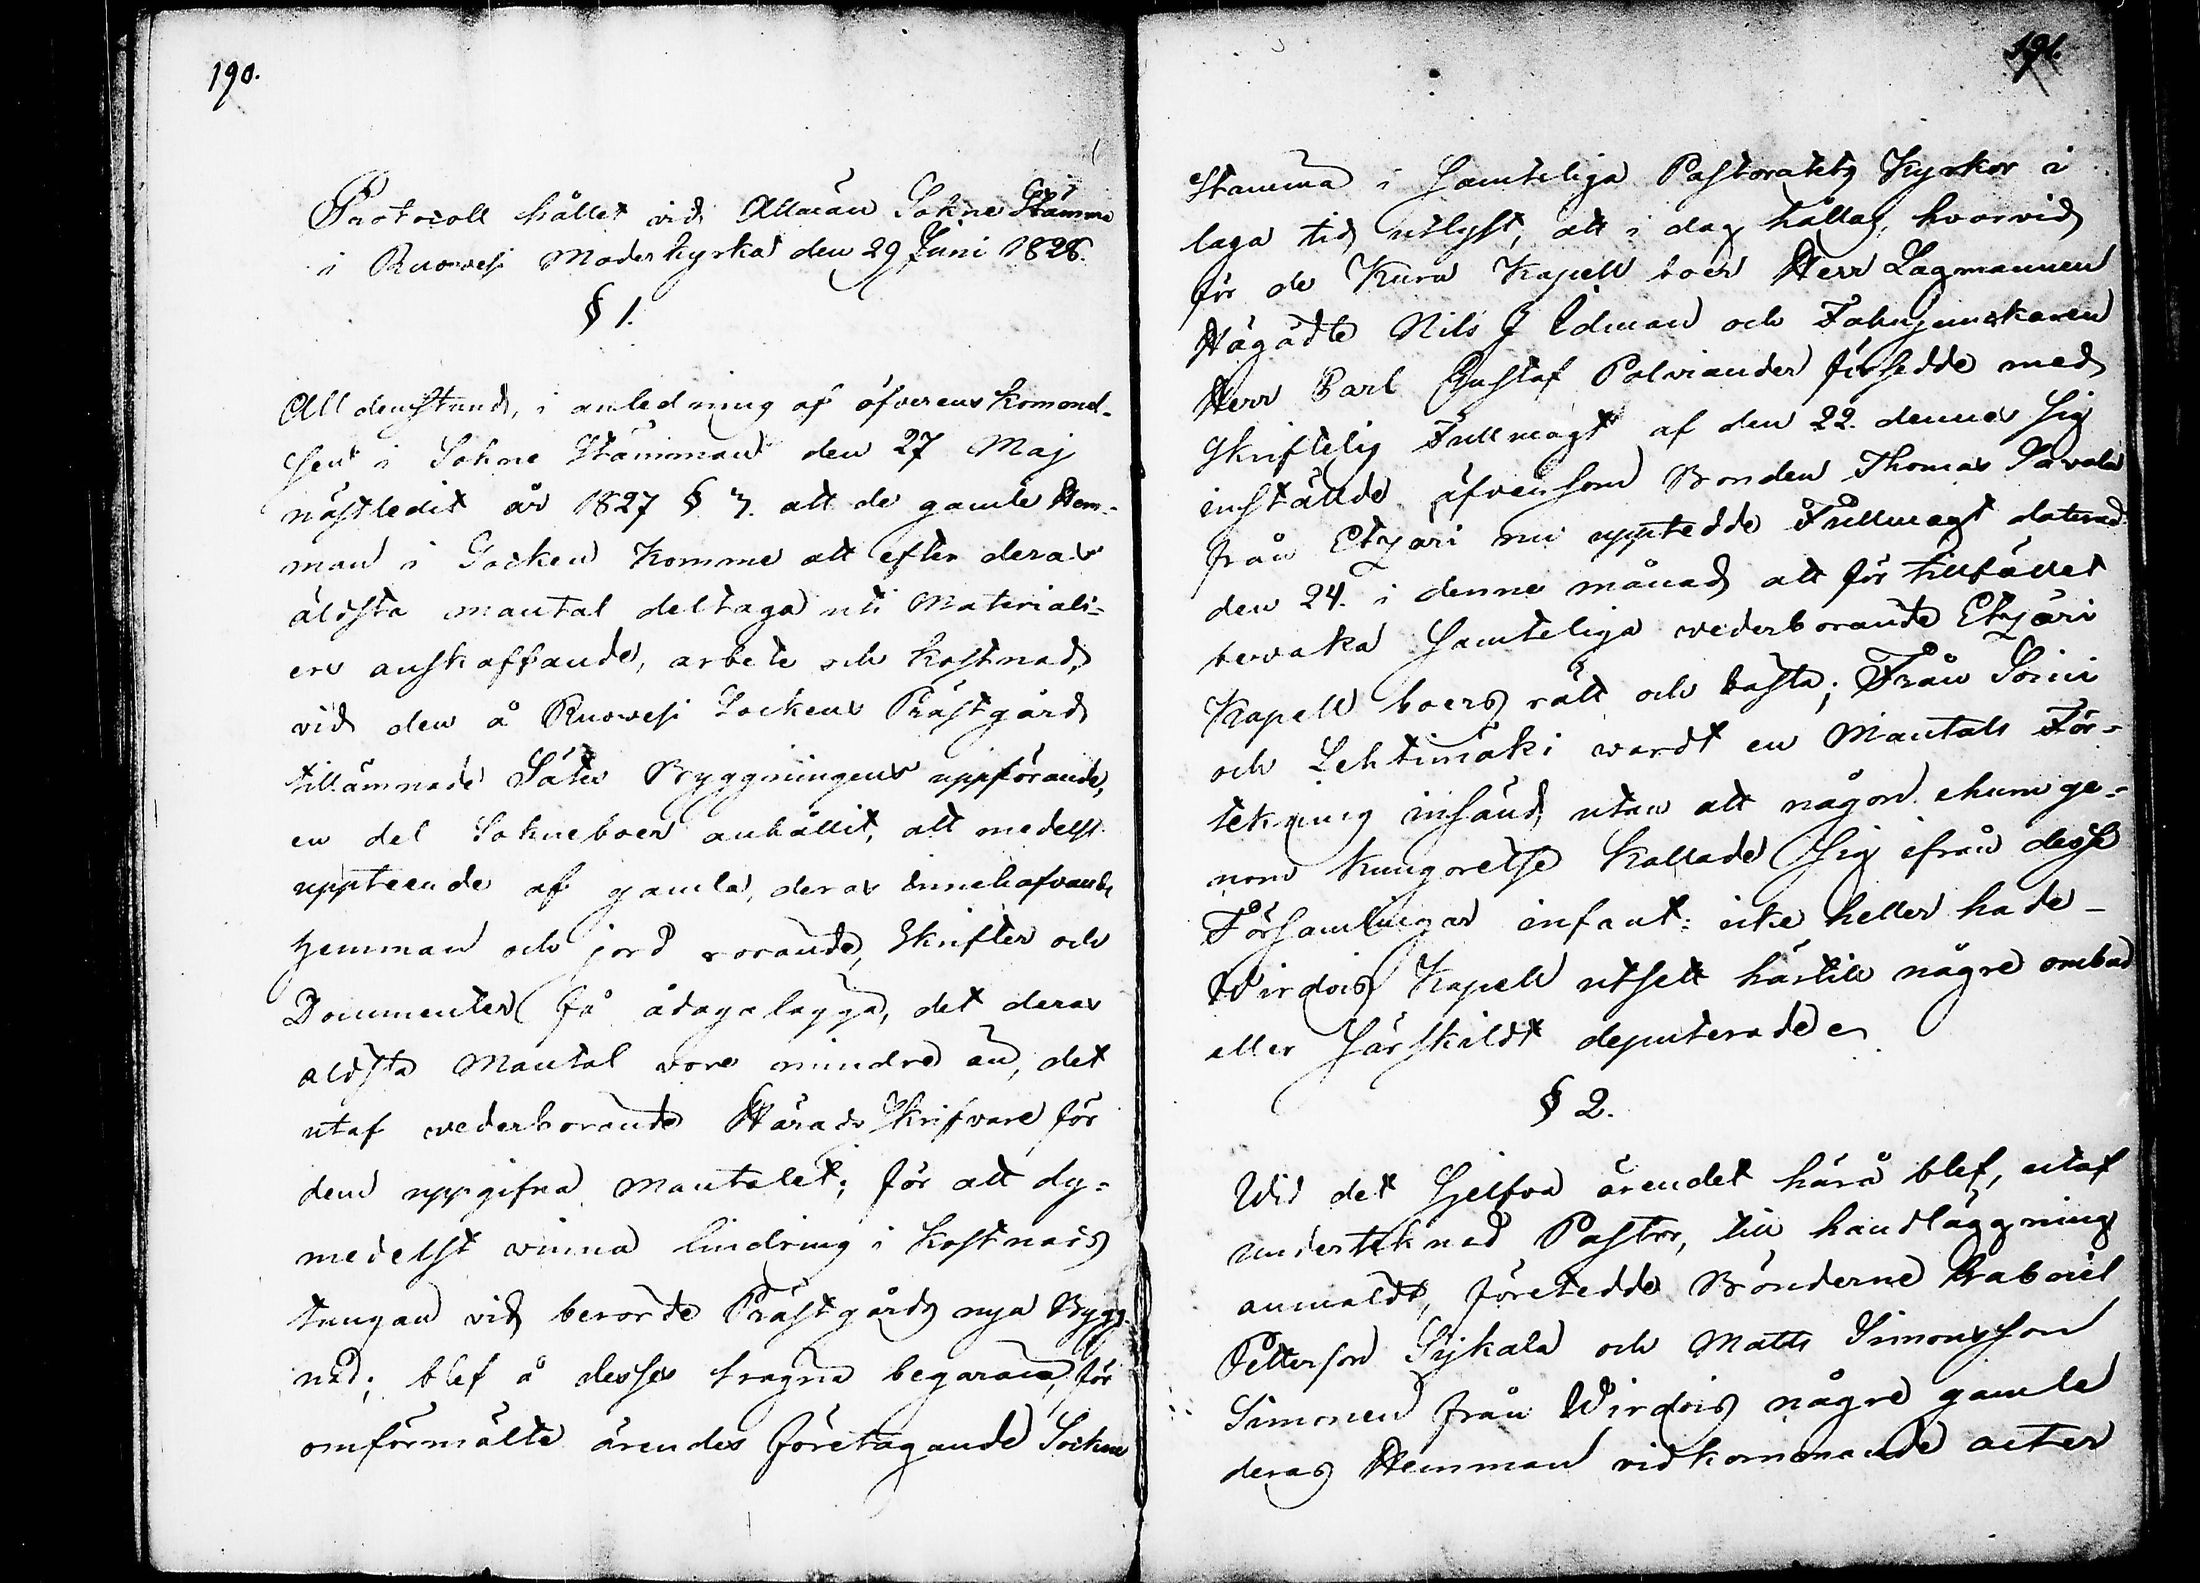 190.
Protocoll hållet vid Allmän Sokne Stämma
i Ruovesi Moderkyrka den 29 Juni 1828.
§ 1.
Alldenstund, i anledning af öfverenskommel-
sen i Sokne Stämman den 27 Maj
nästledit år 1827 § 7. att de gamle Hem-
man i Socken komme att efter deras
äldsta mantal deltaga uti Materiali-
ers anskaffande, arbete och kostnad,
vid den å Ruovesi Sockens Prästgård
tillämnade Sätes Byggningens uppförande,
en del Sokneboer anhållit, att medelst
uppteende af gamla, deras innehafvande
hemman och jord rörande, Skrifter och
Documenter få ådagalägga, det deras
äldsta Mantal vore mindre än, det
utaf vederbörande Härads Skrifvare för
dem uppgifna Mantalet; för att dy-
medelst vinna lindring i kostnads
tungan vid berörde Prästgårds nya Bygg-
nad; blef å desses trägna begäran, för
omförmälte ärendes företagande Sockne
191.
Stämma i Samteliga Pastoratets Kyrkor i
laga tid utlyst, att i dag hållas, hvarvid
för de Kuru Kapell boer Herr Lagmannen
Högädle Nils J Idman och Fahnjunkaren
Herr Carl Gustaf Polviander försedde med
Skriftelig Fullmagt af den 22. dennes sig
inställde äfvensom Bonden Thomas Pavola
från Etzäri nu upptedde Fullmagt daterad
den 24. i denne månad att för tillfället
bevaka Samteliga vederbörande Etzäri
Kapell boers rätt och bästa; Från Soini
och Lehtimäki vardt en Mantals För-
tekning insänd, utan att någon ehuru ge-
nom kungörelse kallade sig ifrån dessa
Församlingar infant: icke heller hade
Wirdois Kapell utsett härtill någre ombud
eller Särskildt deputerade.
§ 2.
Wid det sjelfva ärendet härå blef, utaf
undertecknad Pastor, till handläggning
anmäldt, företedde Bönderne Gabriel
Petterson Sykälä och Matts Simonsson
Simonen från Wirdois någre gamle
deras Hemman vidkommande acter